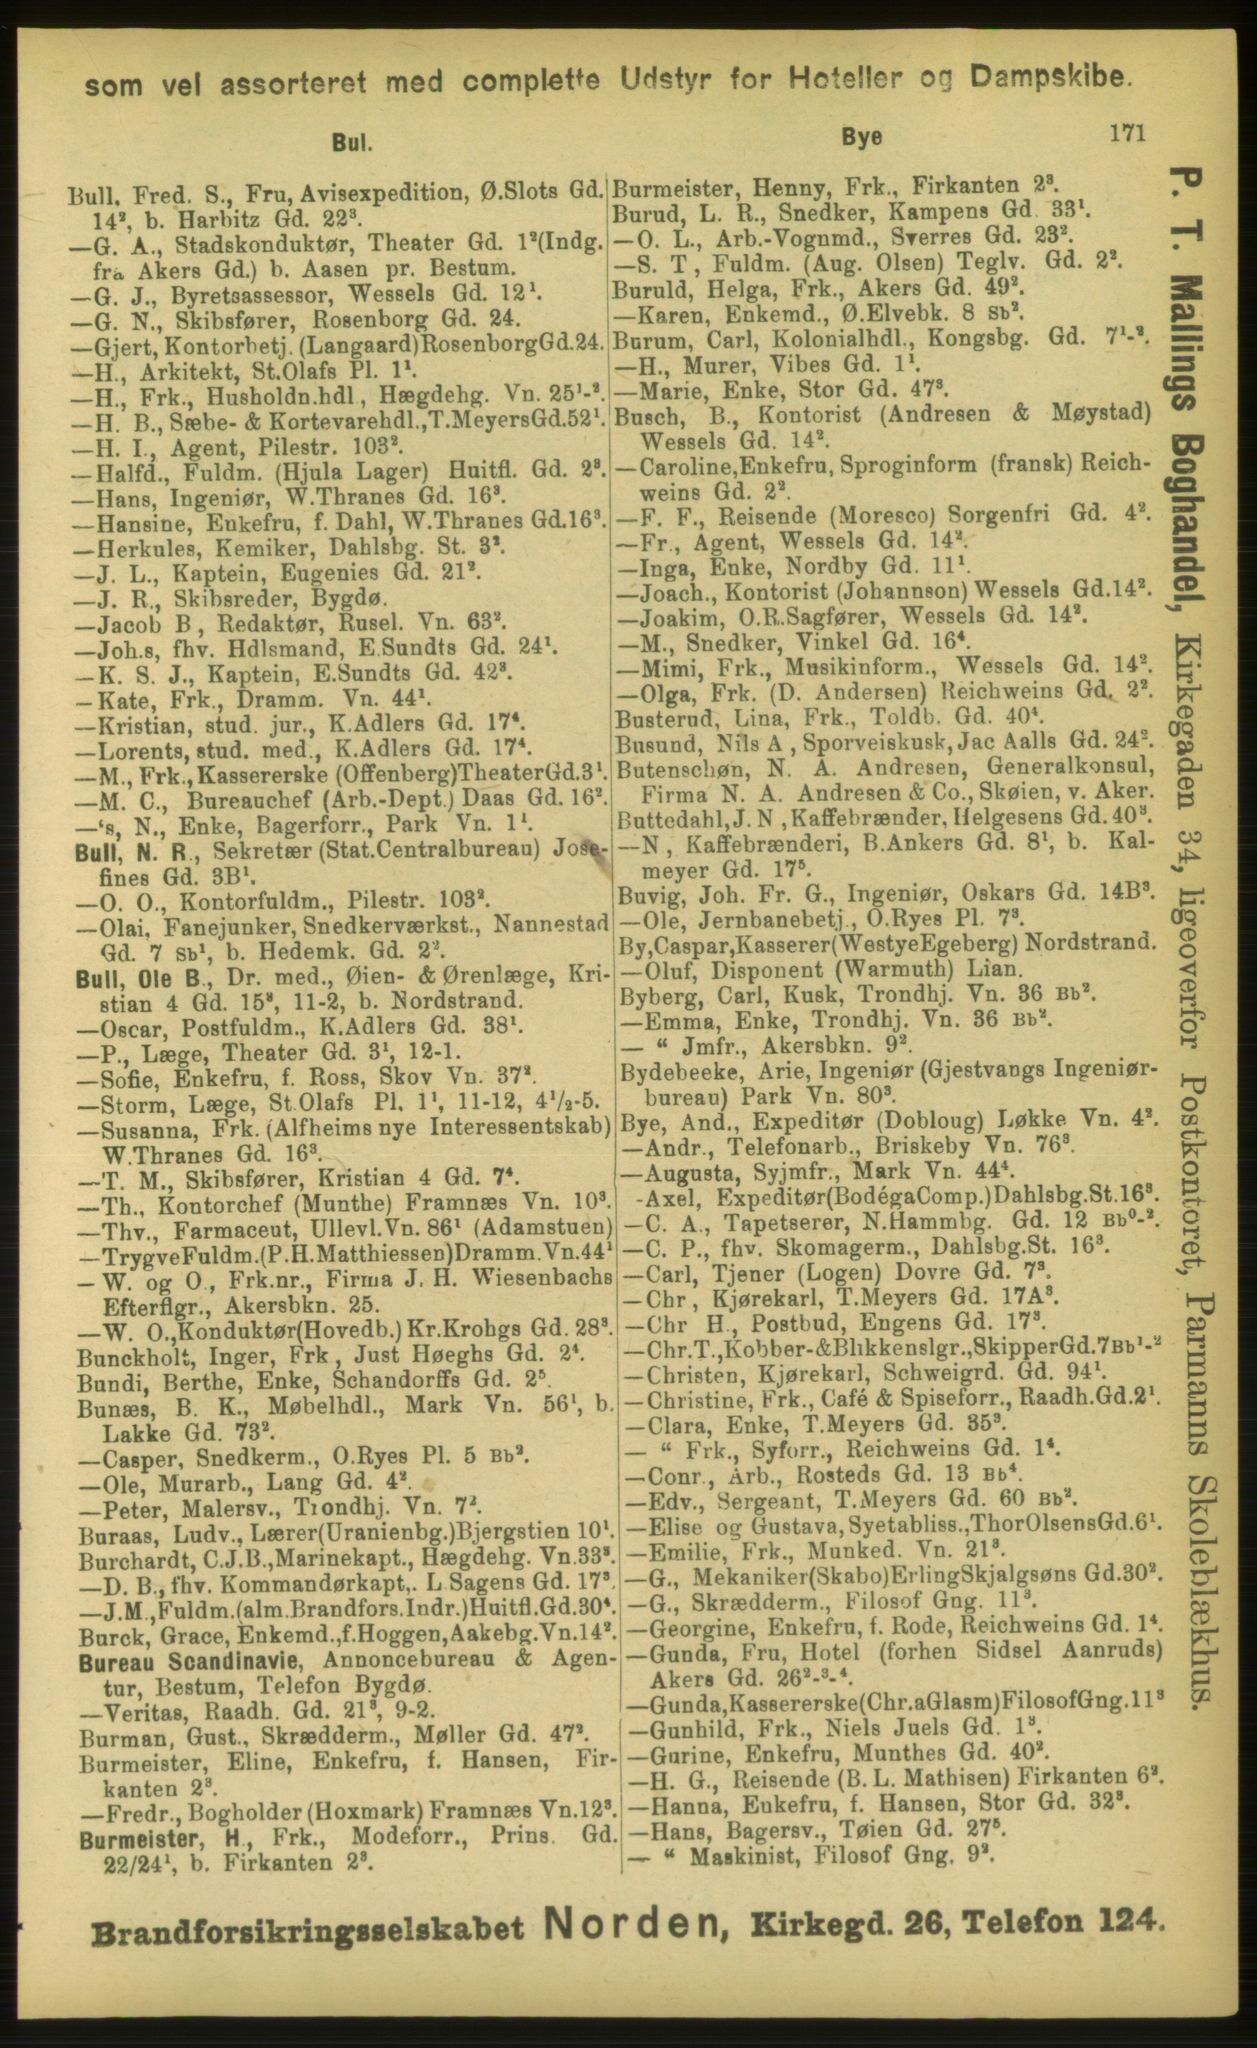 som vel assorteret med complette Udstyr for Hoteller og Dampskibe.
Bul.
Bye
171
Bull, Fred. S., Fru, Avisexpedition, Ø.Slots Gd.
14², b. Harbitz Gd. 22³.
—G. A., Stadskonduktør, Theater Gd. 1²(Indg.
fra Akers Gd.) b. Aasen pr. Bestum.
—G. J., Byretsassessor, Wessels Gd. 12¹.
—G. N., Skibsfører, Rosenborg Gd. 24.
—Gjert, Kontorbetj. (Langaard)RosenborgGd.24.
—H., Arkitekt, St.Olafs Pl. 1¹.
—H., Frk., Husholdn.hdl, Hægdehg. Vn. 25¹-².
—H. B., Sæbe- & Kortevarehdl.,T.MeyersGd.52¹.
—H. I., Agent, Pilestr. 103².
—Halfd., Fuldm. (Hjula Lager) Huitfl. Gd. 2³.
—Hans, Ingeniør, W.Thranes Gd. 16³.
—Hansine, Enkefru, f. Dahl, W.Thranes Gd.16³.
—Herkules, Kemiker, Dahlsbg. St. 3².
—J. L., Kaptein, Eugenies Gd. 21².
—J. R., Skibsreder, Bygdø.
—Jacob B, Redaktør, Rusel. Vn. 63².
—Joh.s, fhv. Hdlsmand, E.Sundts Gd. 24¹.
—K. S. J., Kaptein, E.Sundts Gd. 42³.
—Kate, Frk., Dramm. Vn. 44¹.
—Kristian, stud. jur., K.Adlers Gd. 17⁴.
—Lorents, stud. med., K.Adlers Gd. 17⁴.
—M., Frk., Kassererske (Offenberg)TheaterGd.3¹.
—M. C., Bureauchef (Arb.-Dept.) Daas Gd. 16².
—‘s, N., Enke, Bagerforr., Park Vn. 1¹.
Bull, N. R., Sekretær (Stat.Centralbureau) Jose-
fines Gd. 3B¹.
—O. O., Kontorfuldm., Pilestr. 103².
—Olai, Fanejunker, Snedkerværkst., Nannestad
Gd. 7 Sb¹, b. Hedemk. Gd. 2².
Bull, Ole B., Dr. med., Øien- & Ørenlæge, Kri-
stian 4 Gd. 15³, 11-2, b. Nordstrand.
—Oscar, Postfuldm., K.Adlers Gd. 38¹.
—P., Læge, Theater Gd. 3¹, 12-1.
—Sofie, Enkefru, f. Ross, Skov Vn. 37².
—Storm, Læge, St.Olafs Pl. 1¹, 11-12, 4½-5.
—Susanna, Frk. (Alfheims nye Interessentskab)
W.Thranes Gd. 16³.
—T. M., Skibsfører, Kristian 4 Gd. 7⁴.
—Th., Kontorchef (Munthe) Framnæs Vn. 10³.
—Thv., Farmaceut, Ullevl.Vn. 86¹ (Adamstuen)
—TrygveFuldm.(P.H.Matthiessen)Dramm.Vn.44¹
—W. og O., Frk.nr., Firma J. H. Wiesenbachs
Efterflgr., Akersbkn. 25.
—W. O.,Konduktør(Hovedb.) Kr.Krohgs Gd. 28³.
Bunckholt, Inger, Frk, Just Høeghs Gd. 2⁴.
Bundi, Berthe, Enke, Schandorffs Gd. 2⁵.
Bunæs, B. K., Møbelhdl., Mark Vn. 56¹, b.
Lakke Gd. 73².
—Casper, Snedkerm., O.Ryes Pl. 5 Bb².
—Ole, Murarb., Lang Gd. 4².
—Peter, Malersv., Trondhj. Vn. 7².
Buraas, Ludv., Lærer(Uranienbg.)Bjergstien 10¹.
Burchardt, C.J.B., Marinekapt., Hægdehg. Vn.33³.
—D. B., fhv. Kommandørkapt,. L.Sagens Gd. 17³.
—J.M.,Fuldm.(alm.Brandfors.Indr.)Huitfl.Gd.30⁴.
Burck, Grace, Enkemd.,f.Hoggen,Aakebg.Vn.14².
Bureau Scandinavie, Annoncebureau & Agen-
tur, Bestum, Telefon Bygdø.
—Veritas, Raadh. Gd. 21³, 9-2.
Burman, Gust., Skrædderm., Møller Gd. 47².
Burmeister, Eline, Enkefru, f. Hansen, Fir-
kanten 2³.
—Fredr., Bogholder (Hoxmark) Framnæs Vn.12³.
Burmeister, H., Frk., Modeforr., Prins. Gd.
22/24¹, b. Firkanten 2³.
Burmeister, Henny, Frk., Firkanten 2³.
Burud, L. R., Snedker, Kampens Gd. 33¹.
—O. L., Arb.-Vognmd., Sverres Gd. 23².
—S. T, Fuldm. (Aug. Olsen) Teglv. Gd. 2².
Buruld, Helga, Frk., Akers Gd. 49².
—Karen, Enkemd., Ø.Elvebk. 8 Sb².
Burum, Carl, Kolonialhdl., Kongsbg. Gd. 7¹-².
—H., Murer, Vibes Gd. 1¹.
—Marie, Enke, Stor Gd. 47³.
Busch, B., Kontorist (Andresen & Møystad)
Wessels Gd. 14².
—Caroline,Enkefru, Sproginform (fransk) Reich-
weins Gd. 2².
—F. F., Reisende (Moresco) Sorgenfri Gd. 4².
—Fr., Agent, Wessels Gd. 14².
—Inga, Enke, Nordby Gd. 11¹.
—Joach., Kontorist (Johannson) Wessels Gd.14².
—Joakim, O.R.Sagfører, Wessels Gd. 14².
—M., Snedker, Vinkel Gd. 16⁴.
—Mimi, Frk., Musikinform., Wessels Gd. 14².
—Olga, Frk. (D. Andersen) Reichweins Gd. 2².
Busterud, Lina, Frk., Toldb. Gd. 40⁴.
Busund, Nils A, Sporveiskusk, Jac Aalls Gd. 24².
Butenschøn, N. A. Andresen, Generalkonsul,
Firma N. A. Andresen & Co., Skøien, v. Aker.
Buttedahl, J. N, Kaffebrænder, Helgesens Gd. 40³.
—N, Kaffebrænderi, B.Ankers Gd. 8¹, b. Kal-
meyer Gd. 17⁵.
Buvig, Joh. Fr. G., Ingeniør, Oskars Gd. 14B³.
—Ole, Jernbanebetj., O.Ryes Pl. 7³.
By,Caspar,Kasserer(WestyeEgeberg) Nordstrand.
—Oluf, Disponent (Warmuth) Lian.
Byberg, Carl, Kusk, Trondhj. Vn. 36 Bb².
—Emma, Enke, Trondhj. Vn. 36 Bb².
— “ Jmfr., Akersbkn. 9².
Bydebeeke, Arie, Ingeniør (Gjestvangs Ingeniør-
bureau) Park Vn. 80³.
Bye, And., Expeditør (Dobloug) Løkke Vn. 4².
—Andr., Telefonarb., Briskeby Vn. 76³.
—Augusta, Syjmfr., Mark Vn. 44⁴.
-Axel, Expeditør(BodégaComp.)Dahlsbg.St.16³.
—C. A., Tapetserer, N.Hammbg. Gd. 12 Bb⁰-².
—C. P., fhv. Skomagerm., Dahlsbg.St. 16³.
—Carl, Tjener (Logen) Dovre Gd. 7³.
—Chr, Kjørekarl, T.Meyers Gd. 17A³.
—Chr H., Postbud, Engens Gd. 17³.
—Chr.T.,Kobber-&Blikkenslgr.,SkipperGd.7Bb¹-²
—Christen, Kjørekarl, Schweigrd. Gd. 94¹.
—Christine, Frk., Café & Spiseforr., Raadh.Gd.2¹.
—Clara, Enke, T.Meyers Gd. 35³.
— “ Frk., Syforr., Reichweins Gd. 1⁴.
—Conr., Arb., Rosteds Gd. 13 Bb⁴.
—Edv., Sergeant, T.Meyers Gd. 60 Bb².
—Elise og Gustava, Syetabliss., ThorOlsensGd.6¹.
—Emilie, Frk., Munked. Vn. 21³.
—G., Mekaniker(Skabo)ErlingSkjalgsøns Gd.30².
—G., Skrædderm., Filosof Gng. 11³.
—Georgine, Enkefru, f. Rode, Reichweins Gd. 1⁴.
—Gunda, Fru, Hotel (forhen Sidsel Aanruds)
Akers Gd. 26²-³-⁴.
—Gunda,Kassererske(Chr.aGlasm)FilosofGng.11³
—Gunhild, Frk., Niels Juels Gd. 1³.
—Gurine, Enkefru, Munthes Gd. 40².
—H. G., Reisende (B. L. Mathisen) Firkanten 6².
—Hanna, Enkefru, f. Hansen, Stor Gd. 32³.
—Hans, Bagersv., Tøien Gd. 27⁵.
— “ Maskinist, Filosof Gng. 9².
P. T. Mallings Boghandel, Kirkegaden 34, ligeoverfor Postkontoret, Parmanns Skoleblækhus.
Brandforsikringsselskabet Norden, Kirkegd. 26, Telefon 124.